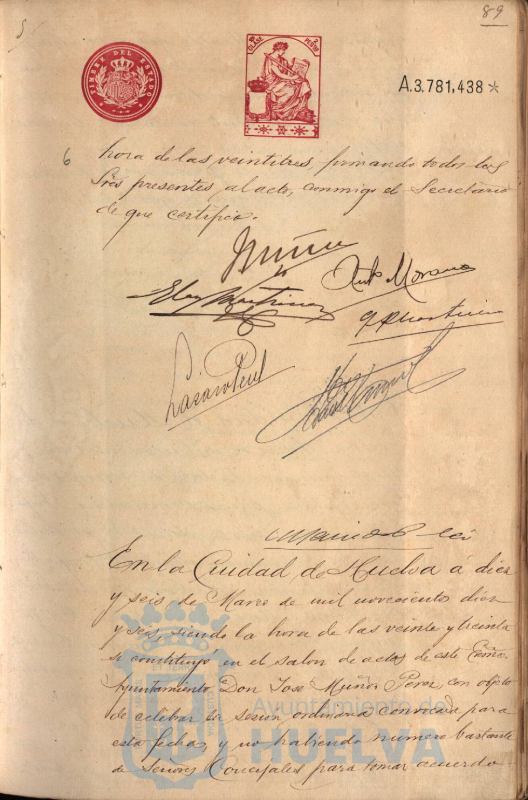 89
TIMBRE DEL ESTADO
CLASE
A.3.781,438 *
6
hora de las veintitres, firmando todos los
Sres presentes, al acto, conmigo el Secretario
de que certifico.
J Muñoz
Ant Moreno
Eloy Martinez
Lazaro
En la Ciudad de Huelva á diez
y seis de Marzo de mil novecientos diez
y seis, siendo la hora de las veinte y treinta
se constituyó en el salon de actos de este Excmo.
Ayuntamiento, Don Jose Muñoz Perez, con objeto
de celebrar la sesion ordinaria convocada para
esta fecha, y no habiendo numero bastante
de Señores Concejales para tomar acuerdo
Ayuntamiento de
HUELVA